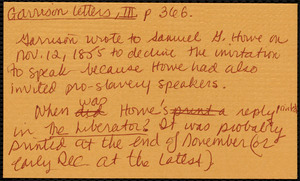 Garrison letters, III p 366.
Garrison wrote to Samuel G. Howe on
Nov. 12, 1855 to decline the invitation
to speak because Howe had also
invited pro-slavery speakers.
was
When did Howe's print a reply printed
in The Liberator? It was probably
printed at the end of November (or
early Dec at the latest)